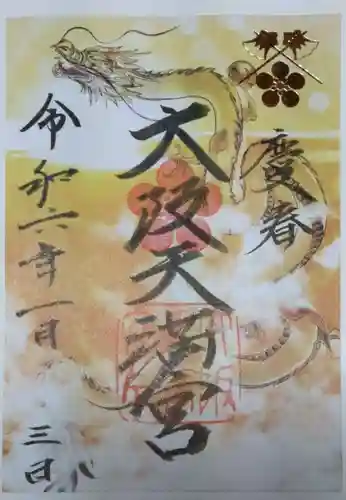 慶春
大阪天満宮
令和六年一月
三日